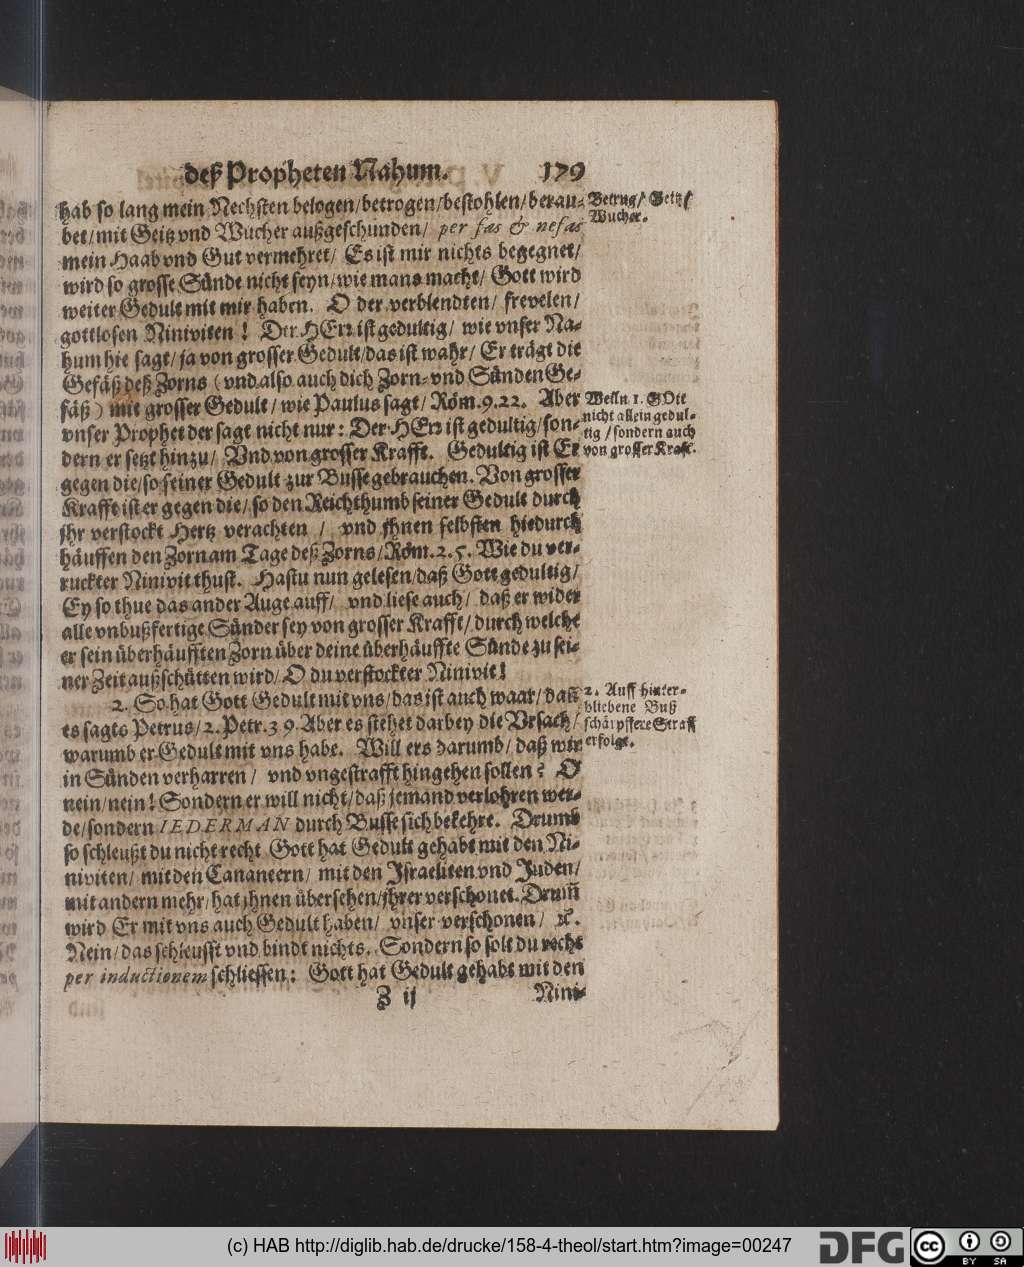 deß Propheten Nahum. 179
hab so lang mein Nechsten belogen/betrogen/bestohlen/berau-
bet/mit Geitz vnd Wucher außgeschunden/ per fas & nefas
mein Haab vnd Gut vermehret/ Es ist mir nichts begegnet/
wird so grosse Sünde nicht seyn/wie mans macht/ Gott wird
weiter Gedult mit mir haben. O der verblendten/ frevelen/
gottlosen Niniviten! Der HErr ist gedultig/ wie vnser Na-
hum hie sagt/ja von grosser Gedult/das ist wahr/ Er trägt die
Gefäß deß Zorns (vnd also auch dich Zorn- vnd Sünden Ge-
fäß) mit grosser Gedult/wie Paulus sagt/ Röm.9.22. Aber
vnser Prophet der sagt nicht nur: Der HErr ist gedultig/son-
dern er setzt hinzu/ Vnd von grosser Krafft. Gedultig ist Er
gegen die/so seiner Gedult zur Busse gebrauchen. Von grosser
Krafft ist er gegen die/ so den Reichthumb seiner Gedult durch
jhr verstockt Hertz verachten / vnd jhnen selbsten hiedurch
häuffen den Zorn am Tage deß Zorns/Röm.2.5. Wie du ver-
ruckter Ninivit thust. Hastu nun gelesen/daß Gott gedultig/
Ey so thue das ander Auge auff/ vnd liese auch/ daß er wider
alle vnbußfertige Sünder sey von grosser Krafft/durch welche
er sein überhäufften Zorn über deine überhäuffte Sünde zu sei-
ner Zeit außschütten wird/O du verstockter Ninivit!
2. So hat Gott Gedult mit vns/das ist auch waar/dañ
es sagts Petrus/2.Petr.3 9. Aber es stehet darbey die Vrsach/
warumb er Gedult mit vns habe. Will ers darumb/ daß wir
in Sünden verharren / vnd vngestrafft hingehen sollen? O
nein/nein! Sondern er will nicht/daß jemand verlohren wer-
de/sondern IEDERMAN durch Busse sich bekehre. Drumb
so schleußt du nicht recht Gott hat Gedult gehabt mit den Ni-
niviten/ mit den Cananeern/ mit den Israeliten vnd Juden/
mit andern mehr/hat jhnen übersehen/jhrer verschonet. Drum̃
wird Er mit vns auch Gedult haben/ vnser verschonen/ ꝛc.
Nein/das schleusst vnd bindt nichts. Sondern so solt du recht
per inductionem schliessen: Gott hat Gedult gehabt mit den
Z ij Nini-
Betrug/ Geitz/
Wucher.
Welln 1. GOtt
nicht allein gedul-
tig / sondern auch
von grosser Kraft.
2. Auff hinter-
bliebene Buß
schärpffere Straff
erfolgt.
(c) HAB http://diglib.hab.de/drucke/158-4-theol/start.htm?image=00247
DFG
cc
BY SA